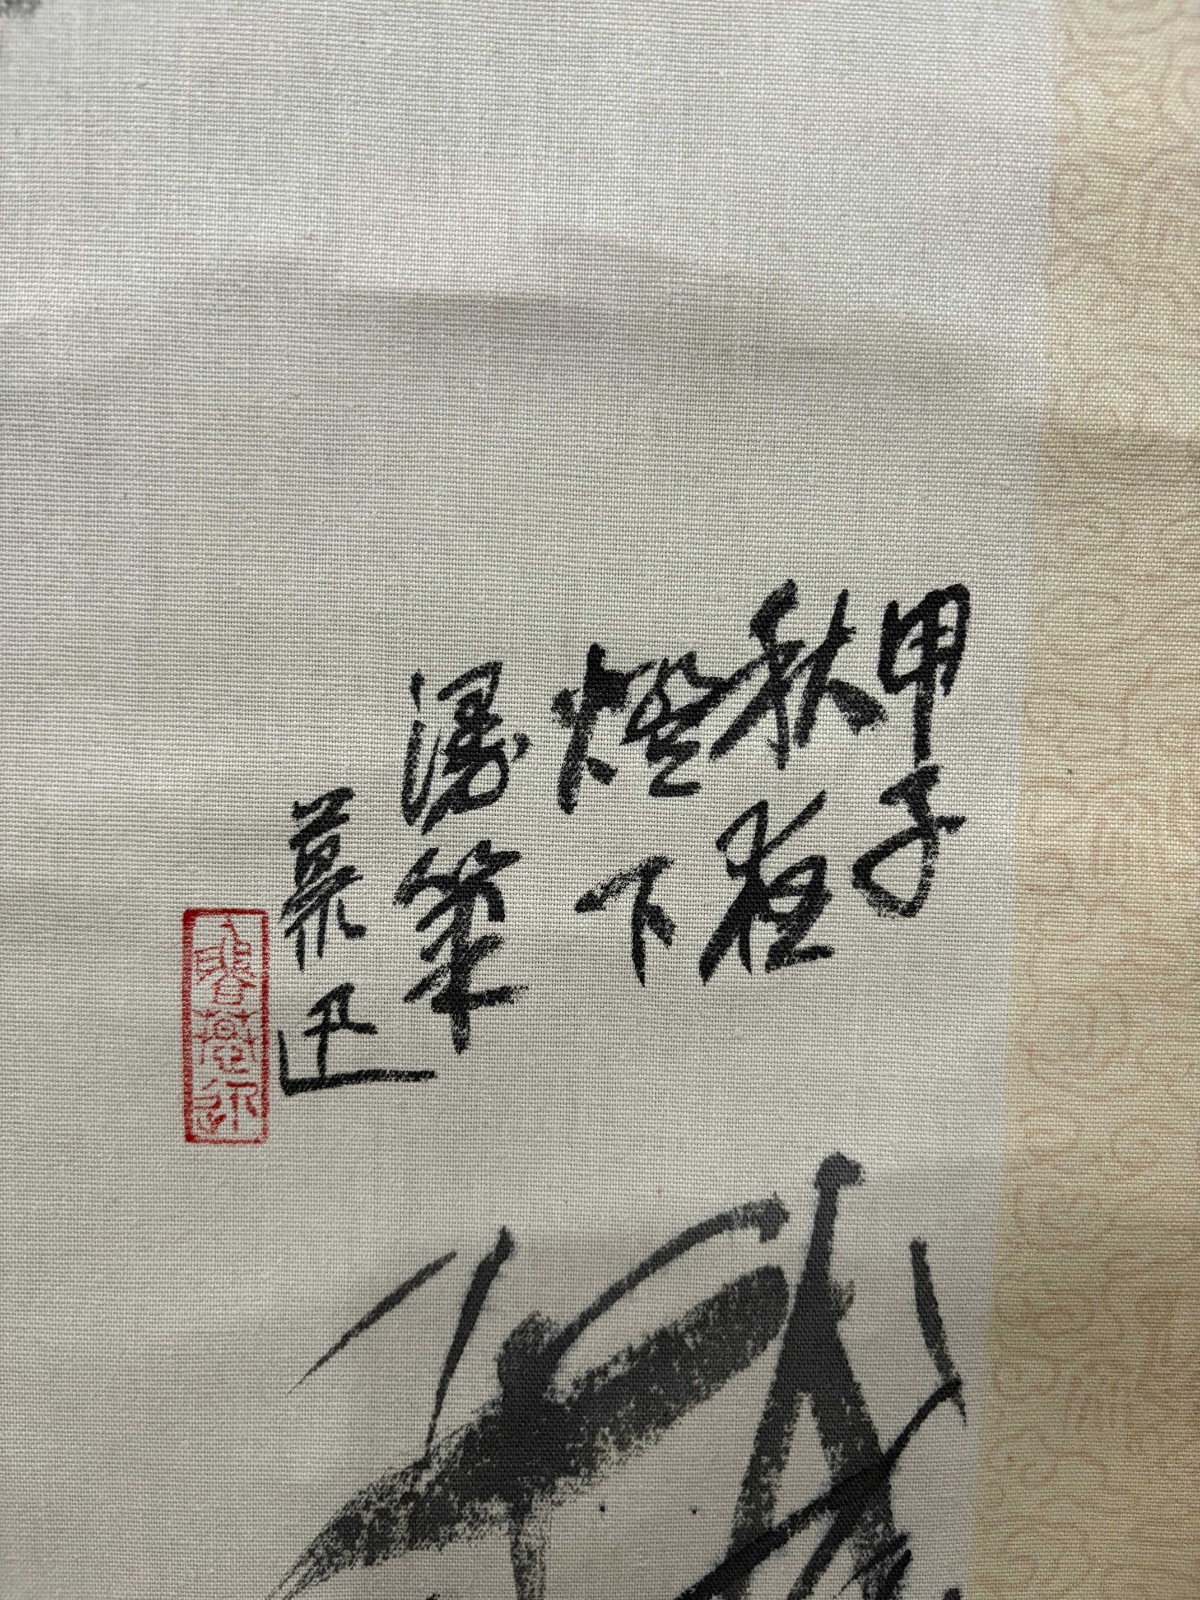 甲子
秋夜
燈下
漫筆
慕迅